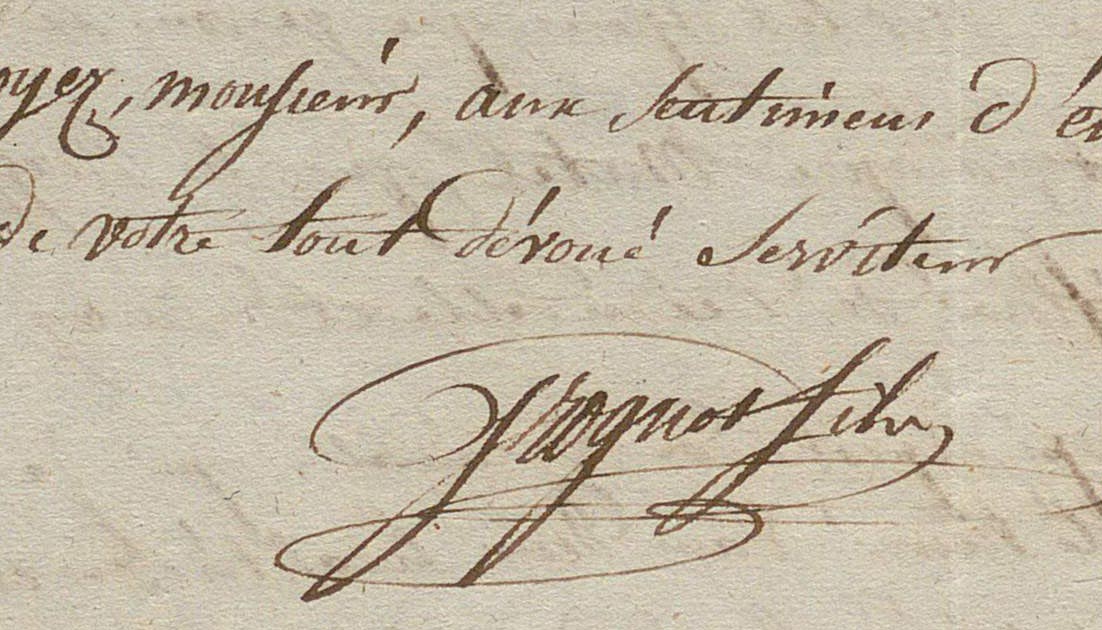 oyez, monsieur, aux sentimens d'é
de votre tout dévoué serviteur
fils